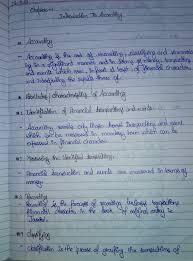 Chapter-1
Introduction To Accounting
* Accounting
Accounting is the art of recording, classifying and summarising
in a significant manner and in terms of money, transactions
and events which are, in part at least, of financial character,
and interpreting the results there of.
* Attributes/characteristics of Accounting
*1 Identification of financial transactions and events
Accounting records only those transactions and events
which can be measured in monetary term which can be
expressed in financial character.
*2 Measuring the identified transactions
Financial transactions and events are measured in terms of
money.
*3 Recording
Recording is the process of recording business transactions
of financial character in the book of original entry i.e.
Journal.
*4 Classifying
Classification is the process of grouping the transactions of